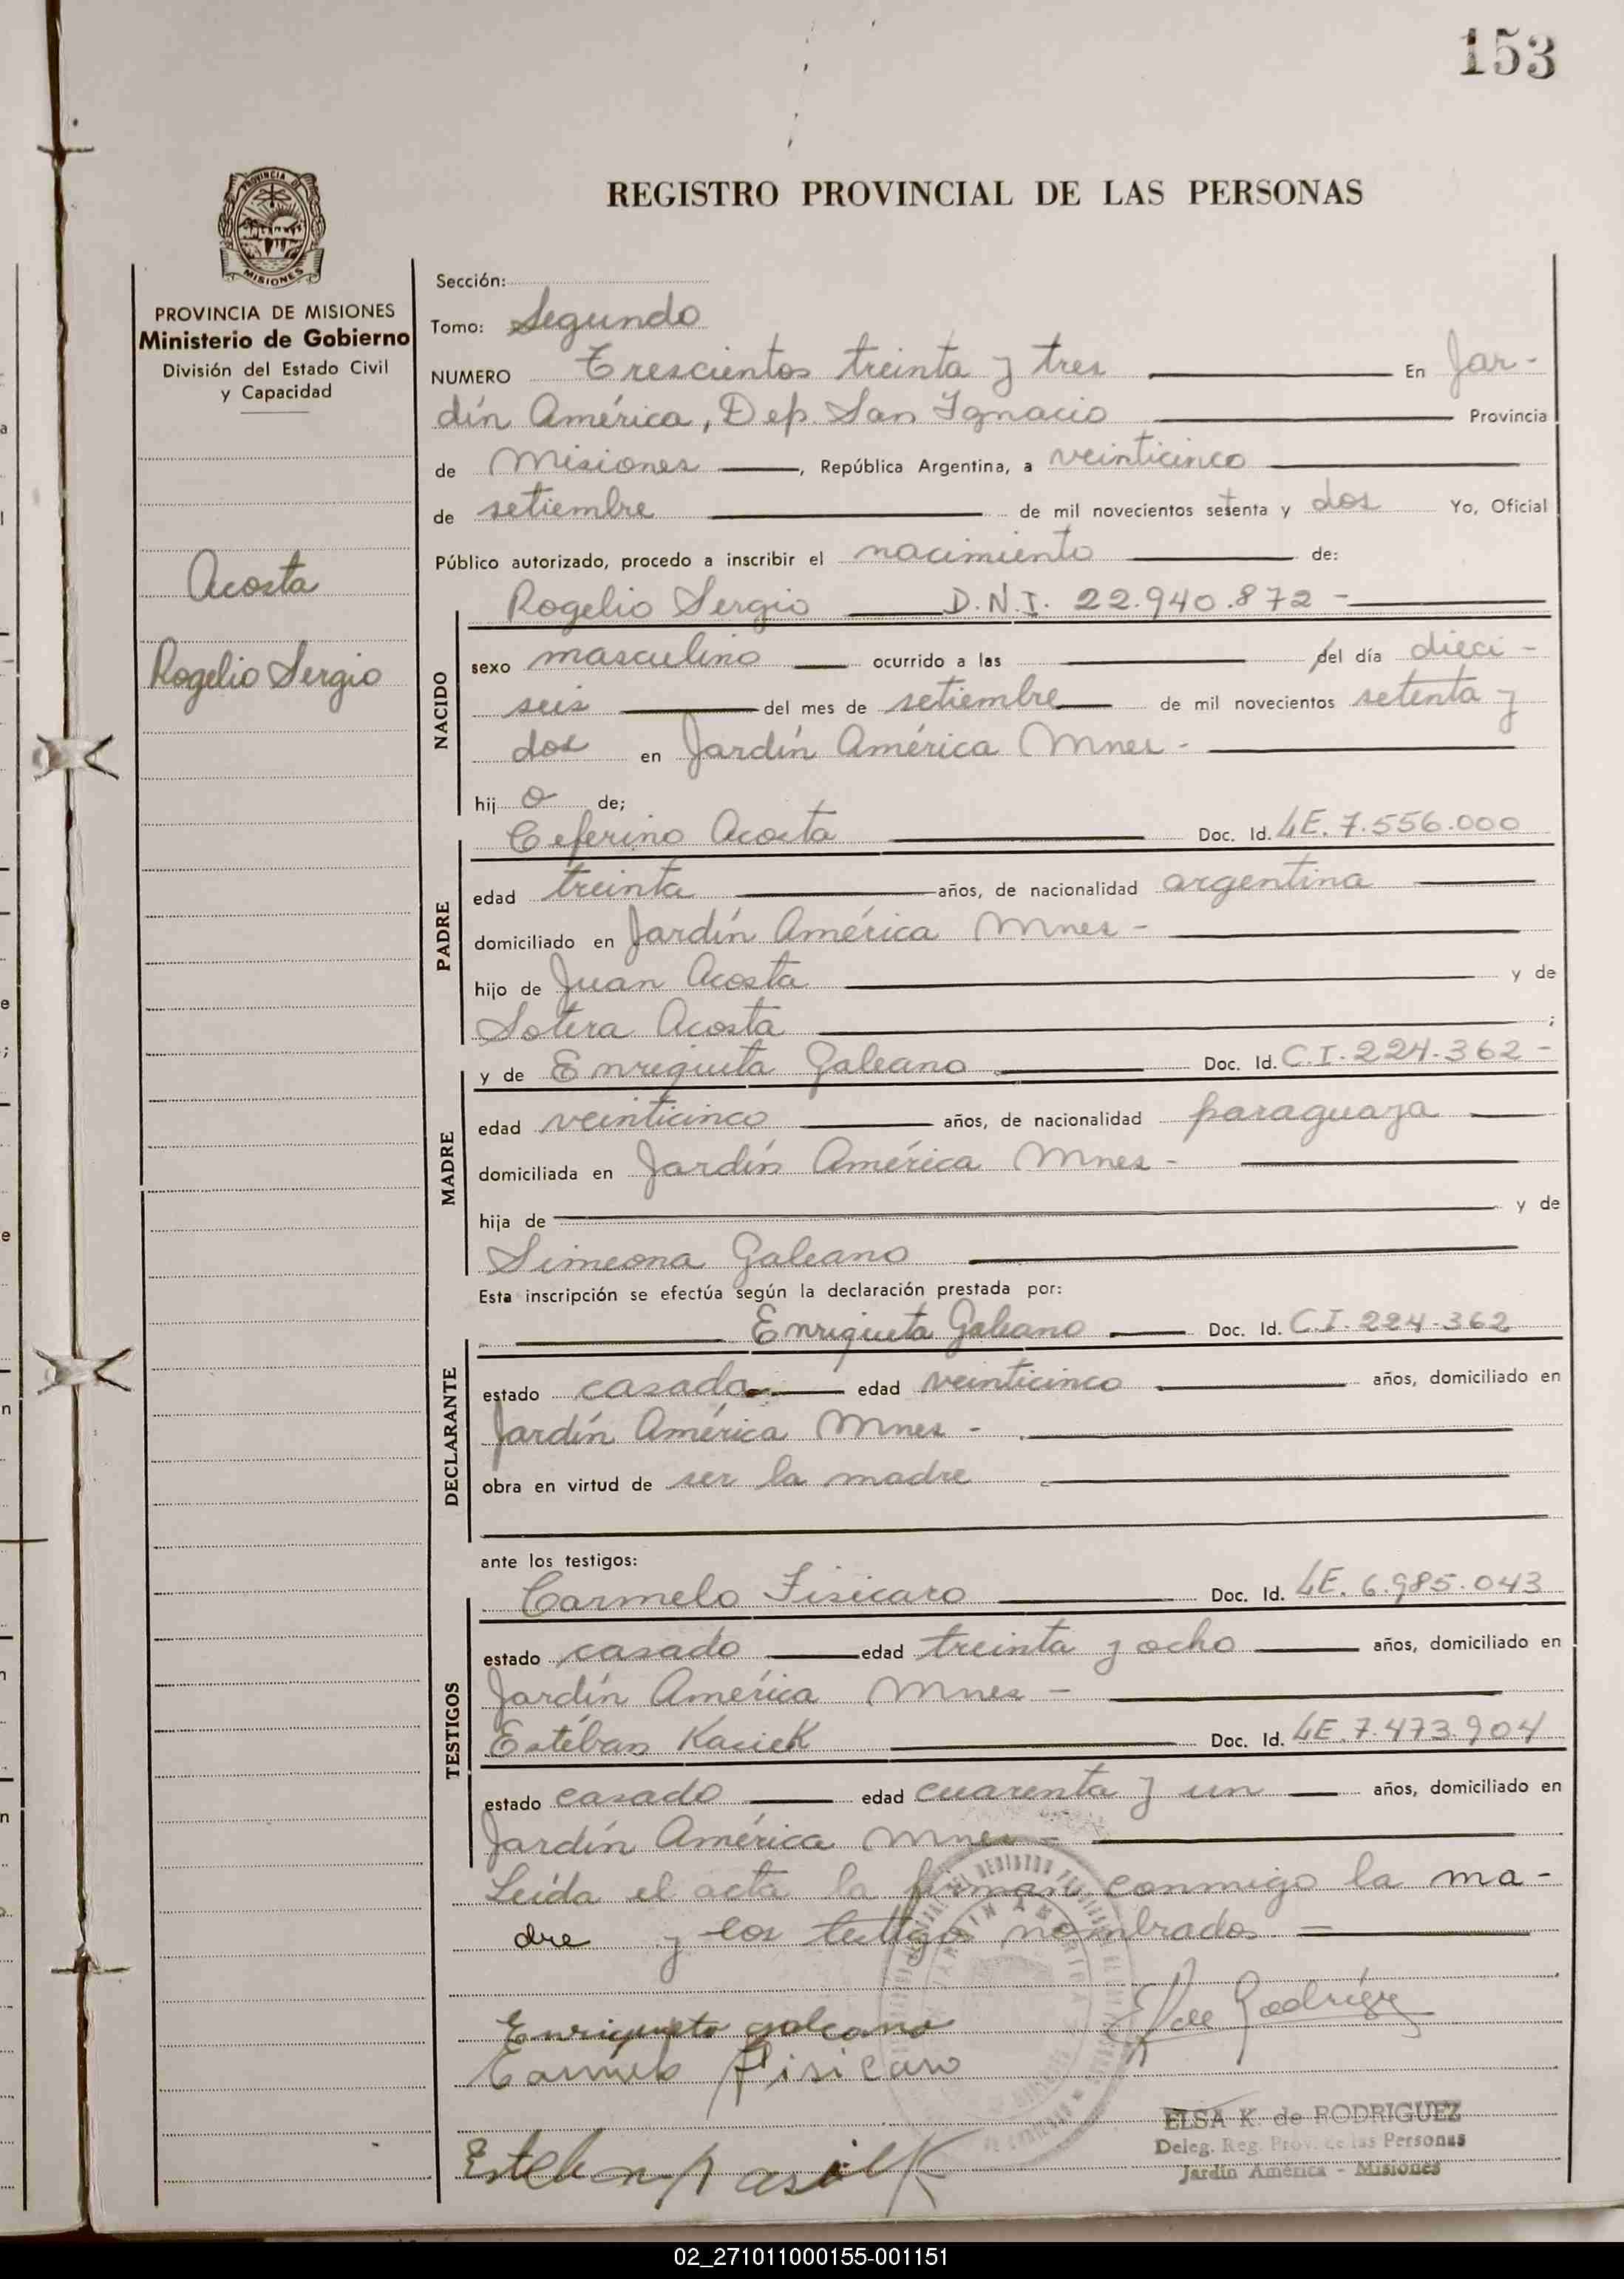 153
PROVINCIA DE
MISIONES
REGISTRO PROVINCIAL DE LAS PERSONAS
PROVINCIA DE MISIONES
Ministerio de Gobierno
División del Estado Civil
y Capacidad
Acosta
Rogelio Sergio
Sección:
Tomo: Segundo
NUMERO Trescientos treinta y tres En Jar-
dín América, Dep. San Ignacio Provincia
de Misiones, República Argentina, a veinticinco
de setiembre de mil novecientos setenta y dos Yo, Oficial
Público autorizado, procedo a inscribir el nacimiento de:
Rogelio Sergio D.N.I. 22.940.872 -
NACIDO
sexo masculino ocurrido a las del día dieci-
seis del mes de setiembre de mil novecientos setenta y
dos en Jardín América Mnes -
hij o de;
Ceferino Acosta Doc. Id. LE. 7.556.000
PADRE
edad treinta años, de nacionalidad argentina
domiciliado en Jardín América Mnes -
hijo de Juan Acosta y de
Sotera Acosta ;
y de Enriqueta Galeano Doc. Id. C.I. 224.362 -
MADRE
edad veinticinco años, de nacionalidad paraguaya
domiciliada en Jardín América Mnes -
hija de y de
Simeona Galeano
Esta inscripción se efectúa según la declaración prestada por:
Enriqueta Galeano Doc. Id. C.I. 224.362
DECLARANTE
estado casada edad veinticinco años, domiciliado en
Jardín América Mnes -
obra en virtud de ser la madre
ante los testigos:
Carmelo Fisicaro Doc. Id. LE. 6.985.043
TESTIGOS
estado casado edad treinta y ocho años, domiciliado en
Jardín América Mnes -
Estéban Kasiek Doc. Id. LE. 7.473.904
estado casado edad cuarenta y un años, domiciliado en
Jardín América Mnes -
Leída el acta la firman conmigo la ma-
dre y los testigos nombrados. =
Enriqueta galeano
Carmelo Fisicaro
ELSA K. de RODRIGUEZ
Deleg. Reg. Prov. de las Personas
Jardín América - Misiones
02_271011000155-001151